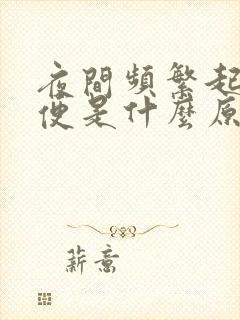 夜間頻繁起
便是什麼原
薪意